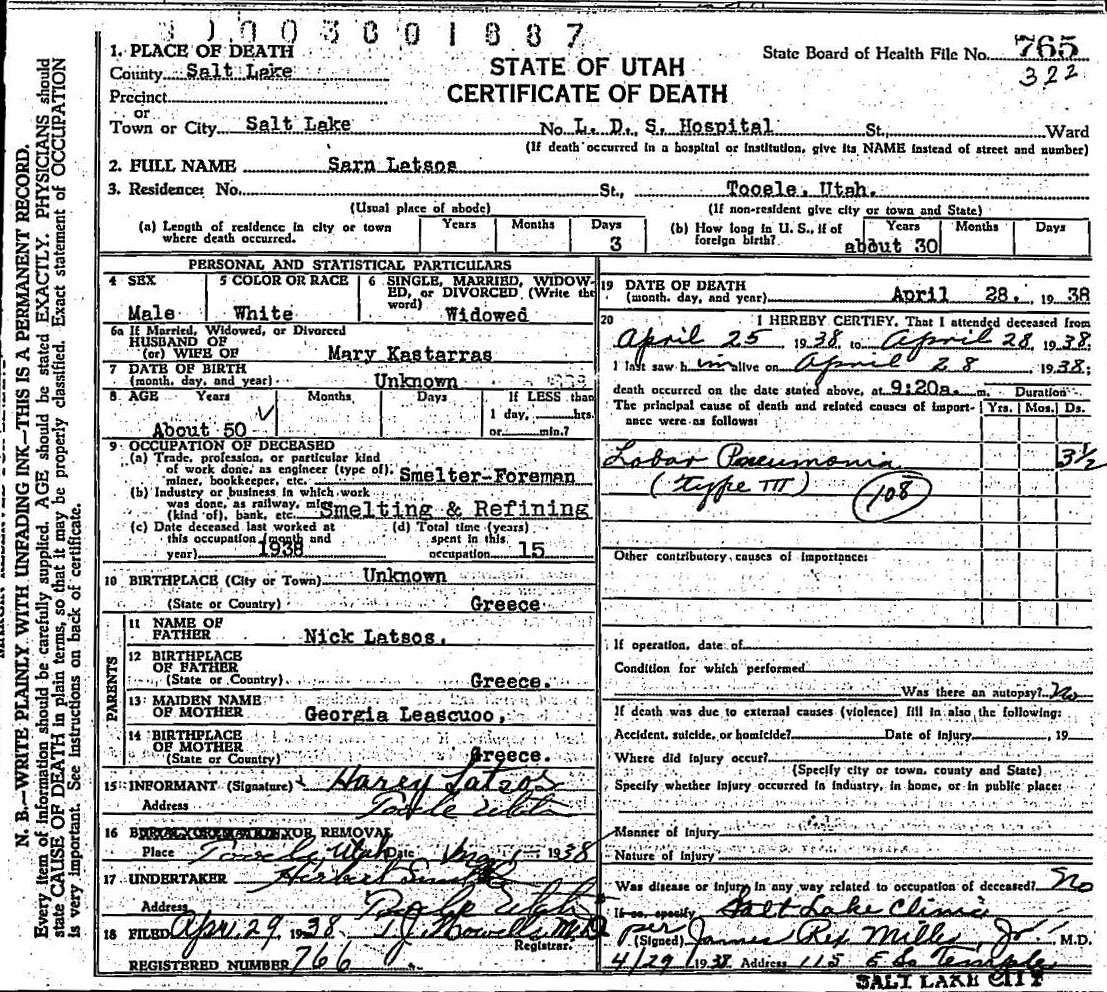 31003801887
1. PLACE OF DEATH
County Salt Lake
Precinct
or
Town or City Salt Lake
STATE OF UTAH
CERTIFICATE OF DEATH
State Board of Health File No. 765
322
No. L. D. S. Hospital St., Ward
(If death occurred in a hospital or institution, give its NAME instead of street and number)
2. FULL NAME Sarn Latsos
3. Residence: No. St., Tooele, Utah.
(Usual place of abode) (If non-resident give city or town and State)
(a) Length of residence in city or town where death occurred. Years Months Days 3
(b) How long in U. S., if of foreign birth? Years about 30 Months Days
PERSONAL AND STATISTICAL PARTICULARS
4 SEX Male
5 COLOR OR RACE White
6 SINGLE, MARRIED, WIDOWED, or DIVORCED (Write the word) Widowed
6a If Married, Widowed, or Divorced
HUSBAND OF
(or) WIFE OF Mary Kastarras
7 DATE OF BIRTH
(month, day, and year) Unknown
8 AGE Years Months Days If LESS than
1 day, hrs.
About 50 or min.?
9 OCCUPATION OF DECEASED
(a) Trade, profession, or particular kind
of work done, as engineer (type of),
miner, bookkeeper, etc. Smelter-Foreman
(b) Industry or business in which work
was done, as railway, mine
(kind of), bank, etc. Smelting & Refining
(c) Date deceased last worked at
this occupation (month and
year) 1938
(d) Total time (years)
spent in this
occupation 15
10 BIRTHPLACE (City or Town) Unknown
(State or Country) Greece
PARENTS
11 NAME OF
FATHER Nick Latsos.
12 BIRTHPLACE
OF FATHER
(State or Country) Greece.
13 MAIDEN NAME
OF MOTHER Georgia Leascuoo,
14 BIRTHPLACE
OF MOTHER
(State or Country) Greece.
15 INFORMANT (Signature) Harry Latsos
Address Tooele Utah
16 OR REMOVAL
Place Tooele, Utah Date 1938
17 UNDERTAKER Herbert
Address Tooele Utah
18 FILED Apr. 29, 1938 T.J. Howells M.D.
Registrar.
REGISTERED NUMBER 766
19 DATE OF DEATH
(month, day, and year) April 28, 1938
20 I HEREBY CERTIFY, That I attended deceased from
April 25 1938, to April 28, 1938.
I last saw him alive on April 28, 1938;
death occurred on the date stated above, at 9:20a. m. Duration
The principal cause of death and related causes of importance were as follows: Yrs. Mos. Ds.
Lobar Pneumonia 3½
(type III) 108
Other contributory causes of importance:
If operation, date of
Condition for which performed
Was there an autopsy? No
If death was due to external causes (violence) fill in also the following:
Accident, suicide, or homicide? Date of injury , 19
Where did injury occur?
(Specify city or town, county and State)
Specify whether injury occurred in industry, in home, or in public place:
Manner of injury
Nature of injury
Was disease or injury in any way related to occupation of deceased? No
If so, specify Salt Lake Clinic
per
(Signed) James Rex Mills, Jr. M.D.
4/29 1938 Address 115 E So Temple
SALT LAKE CITY
N. B.—WRITE PLAINLY WITH UNFADING INK—THIS IS A PERMANENT RECORD.
Every item of information should be carefully supplied. AGE should be stated EXACTLY. PHYSICIANS should
state CAUSE OF DEATH in plain terms, so that it may be properly classified. Exact statement of OCCUPATION
is very important. See instructions on back of certificate.